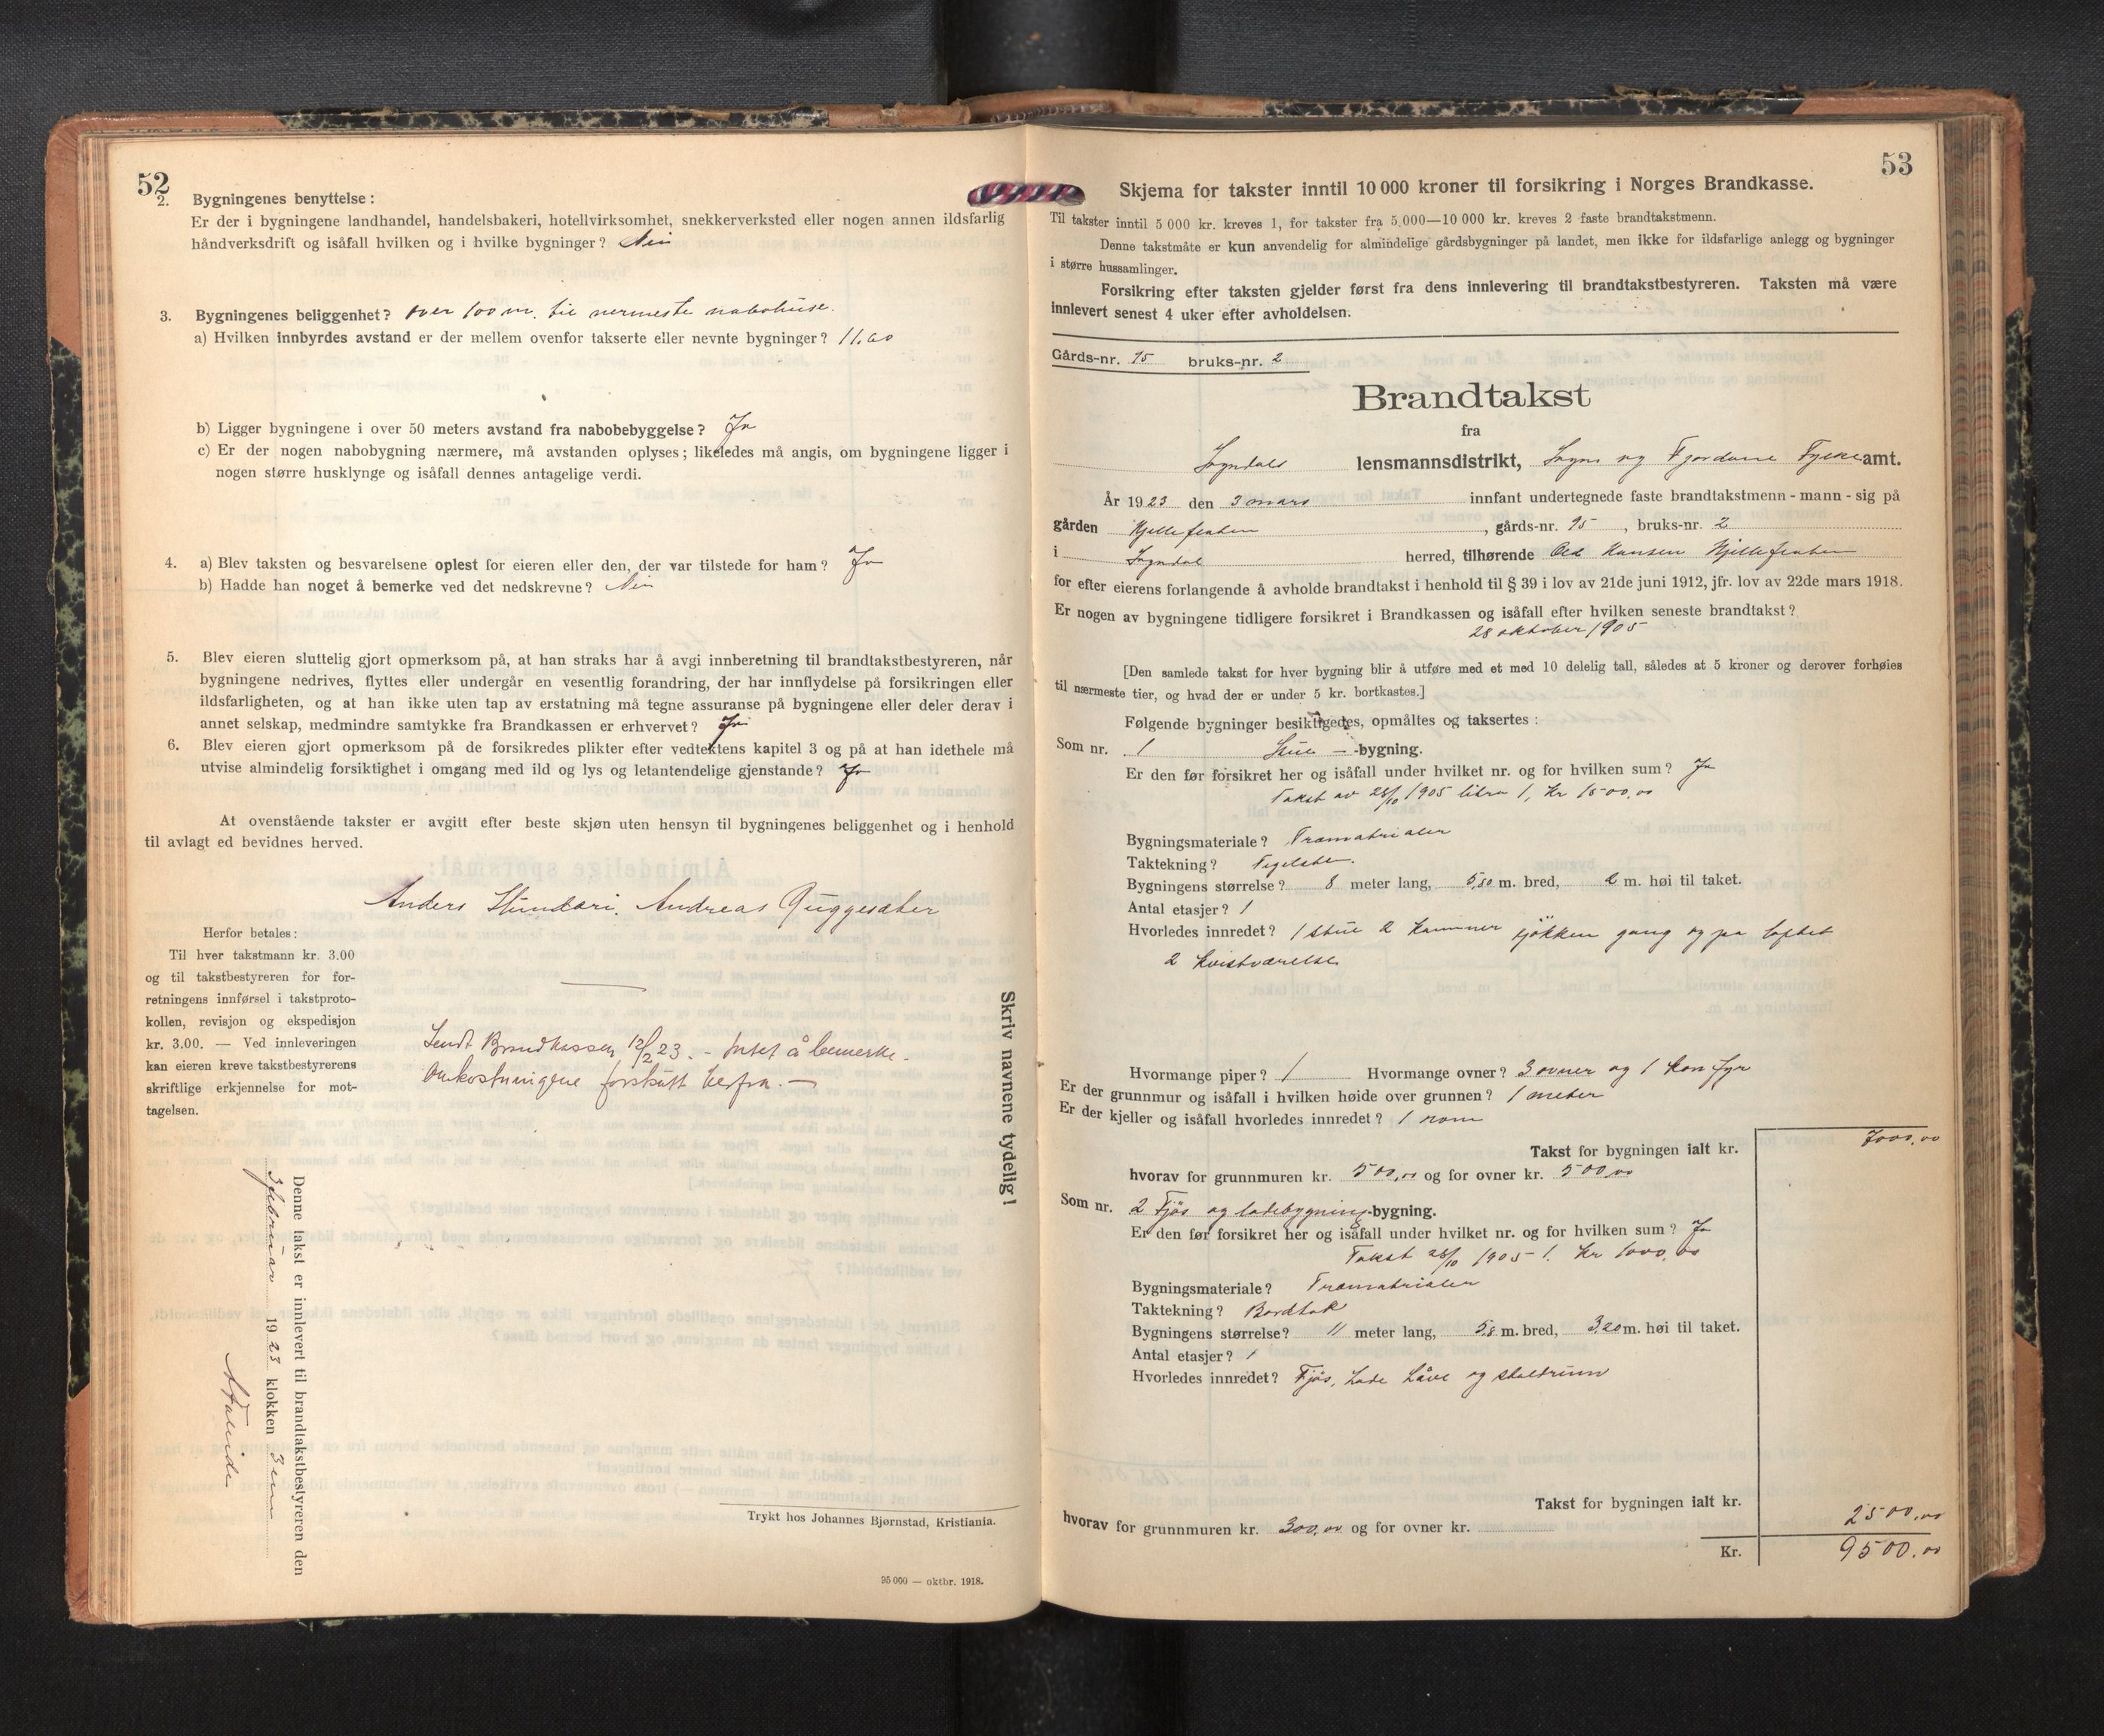 52
2. Bygningenes benyttelse:
Er der i bygningene landhandel, handelsbakeri, hotellvirksomhet, snekkerverksted eller nogen annen ildsfarlig
håndverksdrift og isåfall hvilken og i hvilke bygninger? Nei
3. Bygningenes beliggenhet? over 100 m. til nermeste nabohuse.
a) Hvilken innbyrdes avstand er der mellem ovenfor takserte eller nevnte bygninger? 11.60
b) Ligger bygningene i over 50 meters avstand fra nabobebyggelse? Ja
c) Er der nogen nabobygning nærmere, må avstanden oplyses; likeledes må angis, om bygningene ligger i
nogen større husklynge og isåfall dennes antagelige verdi.
4. a) Blev taksten og besvarelsene oplest for eieren eller den, der var tilstede for ham? Ja
b) Hadde han noget å bemerke ved det nedskrevne? Nei
5. Blev eieren sluttelig gjort opmerksom på, at han straks har å avgi innberetning til brandtakstbestyreren, når
bygningene nedrives, flyttes eller undergår en vesentlig forandring, der har innflydelse på forsikringen eller
ildsfarligheten, og at han ikke uten tap av erstatning må tegne assuranse på bygningene eller deler derav i
annet selskap, medmindre samtykke fra Brandkassen er erhvervet? Ja
6. Blev eieren gjort opmerksom på de forsikredes plikter efter vedtektens kapitel 3 og på at han idethele må
utvise almindelig forsiktighet i omgang med ild og lys og letantendelige gjenstande? Ja
At ovenstående takster er avgitt efter beste skjøn uten hensyn til bygningenes beliggenhet og i henhold
til avlagt ed bevidnes herved.
Anders Stundari. Andreas Quggesæter
Herfor betales:
Til hver takstmann kr. 3.00
og til takstbestyreren for for-
retningens innførsel i takstproto-
kollen, revisjon og ekspedisjon
kr. 3.00. — Ved innleveringen
kan eieren kreve takstbestyrerens
skriftlige erkjennelse for mot-
tagelsen.
Sendt Brandkassen 12/2 23. - Intet å bemerke.
Omkostningene forskutt herfra. —
Skriv navnene tydelig!
Denne takst er innlevert til brandtakstbestyreren den
3 februar 1923 klokken 3 em
Trykt hos Johannes Bjørnstad, Kristiania.
25 000 — oktbr. 1918.
53
Skjema for takster inntil 10 000 kroner til forsikring i Norges Brandkasse.
Til takster inntil 5 000 kr. kreves 1, for takster fra 5,000—10 000 kr. kreves 2 faste brandtakstmenn.
Denne takstmåte er kun anvendelig for almindelige gårdsbygninger på landet, men ikke for ildsfarlige anlegg og bygninger
i større hussamlinger.
Forsikring efter taksten gjelder først fra dens innlevering til brandtakstbestyreren. Taksten må være
innlevert senest 4 uker efter avholdelsen.
Gårds-nr. 15 bruks-nr. 2
Brandtakst
fra
Sogndals lensmannsdistrikt, Sogn og Fjordane Fylke amt.
År 1923 den 3 mars innfant undertegnede faste brandtakstmenn - mann - sig på
gården , gårds-nr. 15 , bruks-nr. 2
i Sogndal herred, tilhørende Ole Hansen
for efter eierens forlangende å avholde brandtakst i henhold til § 39 i lov av 21de juni 1912, jfr. lov av 22de mars 1918.
Er nogen av bygningene tidligere forsikret i Brandkassen og isåfall efter hvilken seneste brandtakst?
28 oktober 1905
[Den samlede takst for hver bygning blir å utføre med et med 10 delelig tall, således at 5 kroner og derover forhøies
til nærmeste tier, og hvad der er under 5 kr. bortkastes.]
Følgende bygninger besiktigedes, opmåltes og taksertes:
Som nr. 1 Stue - -bygning.
Er den før forsikret her og isåfall under hvilket nr. og for hvilken sum? Ja
Takst av 28/10 1905 litra 1, Kr 1500,00
Bygningsmateriale? Træmatrialer
Taktekning? Tegelsten.
Bygningens størrelse? 8 meter lang, 5,80 m. bred, 2 m. høi til taket.
Antal etasjer? 1
Hvorledes innredet? 1 stue 2 Kammer kjøkken gang og pa loftet
2 Kvistværelse
Hvormange piper? 1 Hvormange ovner? 3 ovner og 1 Komfyr
Er der grunnmur og isåfall i hvilken høide over grunnen? 1 meter
Er der kjeller og isåfall hvorledes innredet? 1 rom
Takst for bygningen ialt kr. 7000,00
hvorav for grunnmuren kr. 500,00 og for ovner kr. 500,00
Som nr. 2 Fjøs og ladebygning-bygning.
Er den før forsikret her og isåfall under hvilket nr. og for hvilken sum? Ja
Takst 28/10 1905 1. Kr 1000,00
Bygningsmateriale? Træmatrialer
Taktekning? Bordtak
Bygningens størrelse? 11 meter lang, 5,8 m. bred, 3,20 m. høi til taket.
Antal etasjer? 1
Hvorledes innredet? Fjøs, Lade Låve og staldrum
Takst for bygningen ialt kr. 2500,00
hvorav for grunnmuren kr. 300,00 og for ovner kr.
Kr. 9500,00